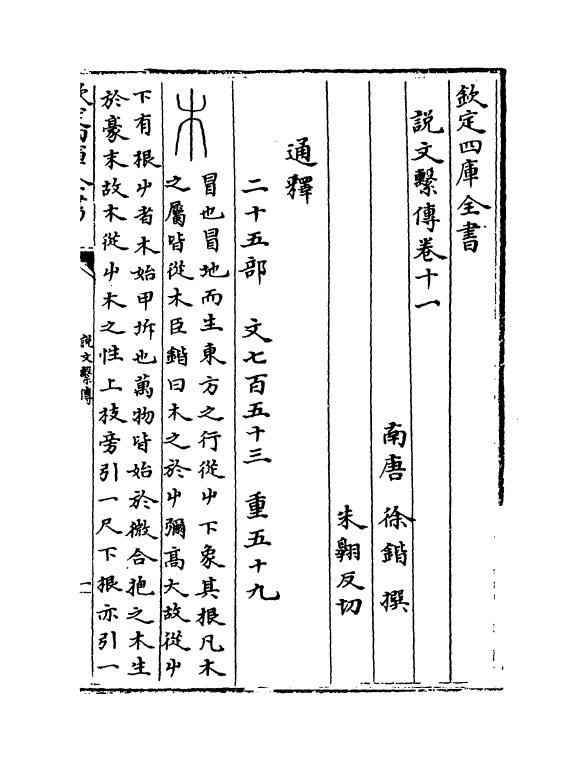 欽定四庫全書
説文繫傳卷十一
南唐 徐鍇 撰
朱翺反切
通釋
二十五部 文七百五十三 重五十九
木
冒也冒地而生東方之行從屮下象其根凡木
之屬皆從木臣鍇曰木之於屮彌高大故從屮
下有根屮者木始甲拆也萬物皆始於微合抱之木生
於豪末故木從屮木之性上枝旁引一尺下根亦引一
説文繫傳
一